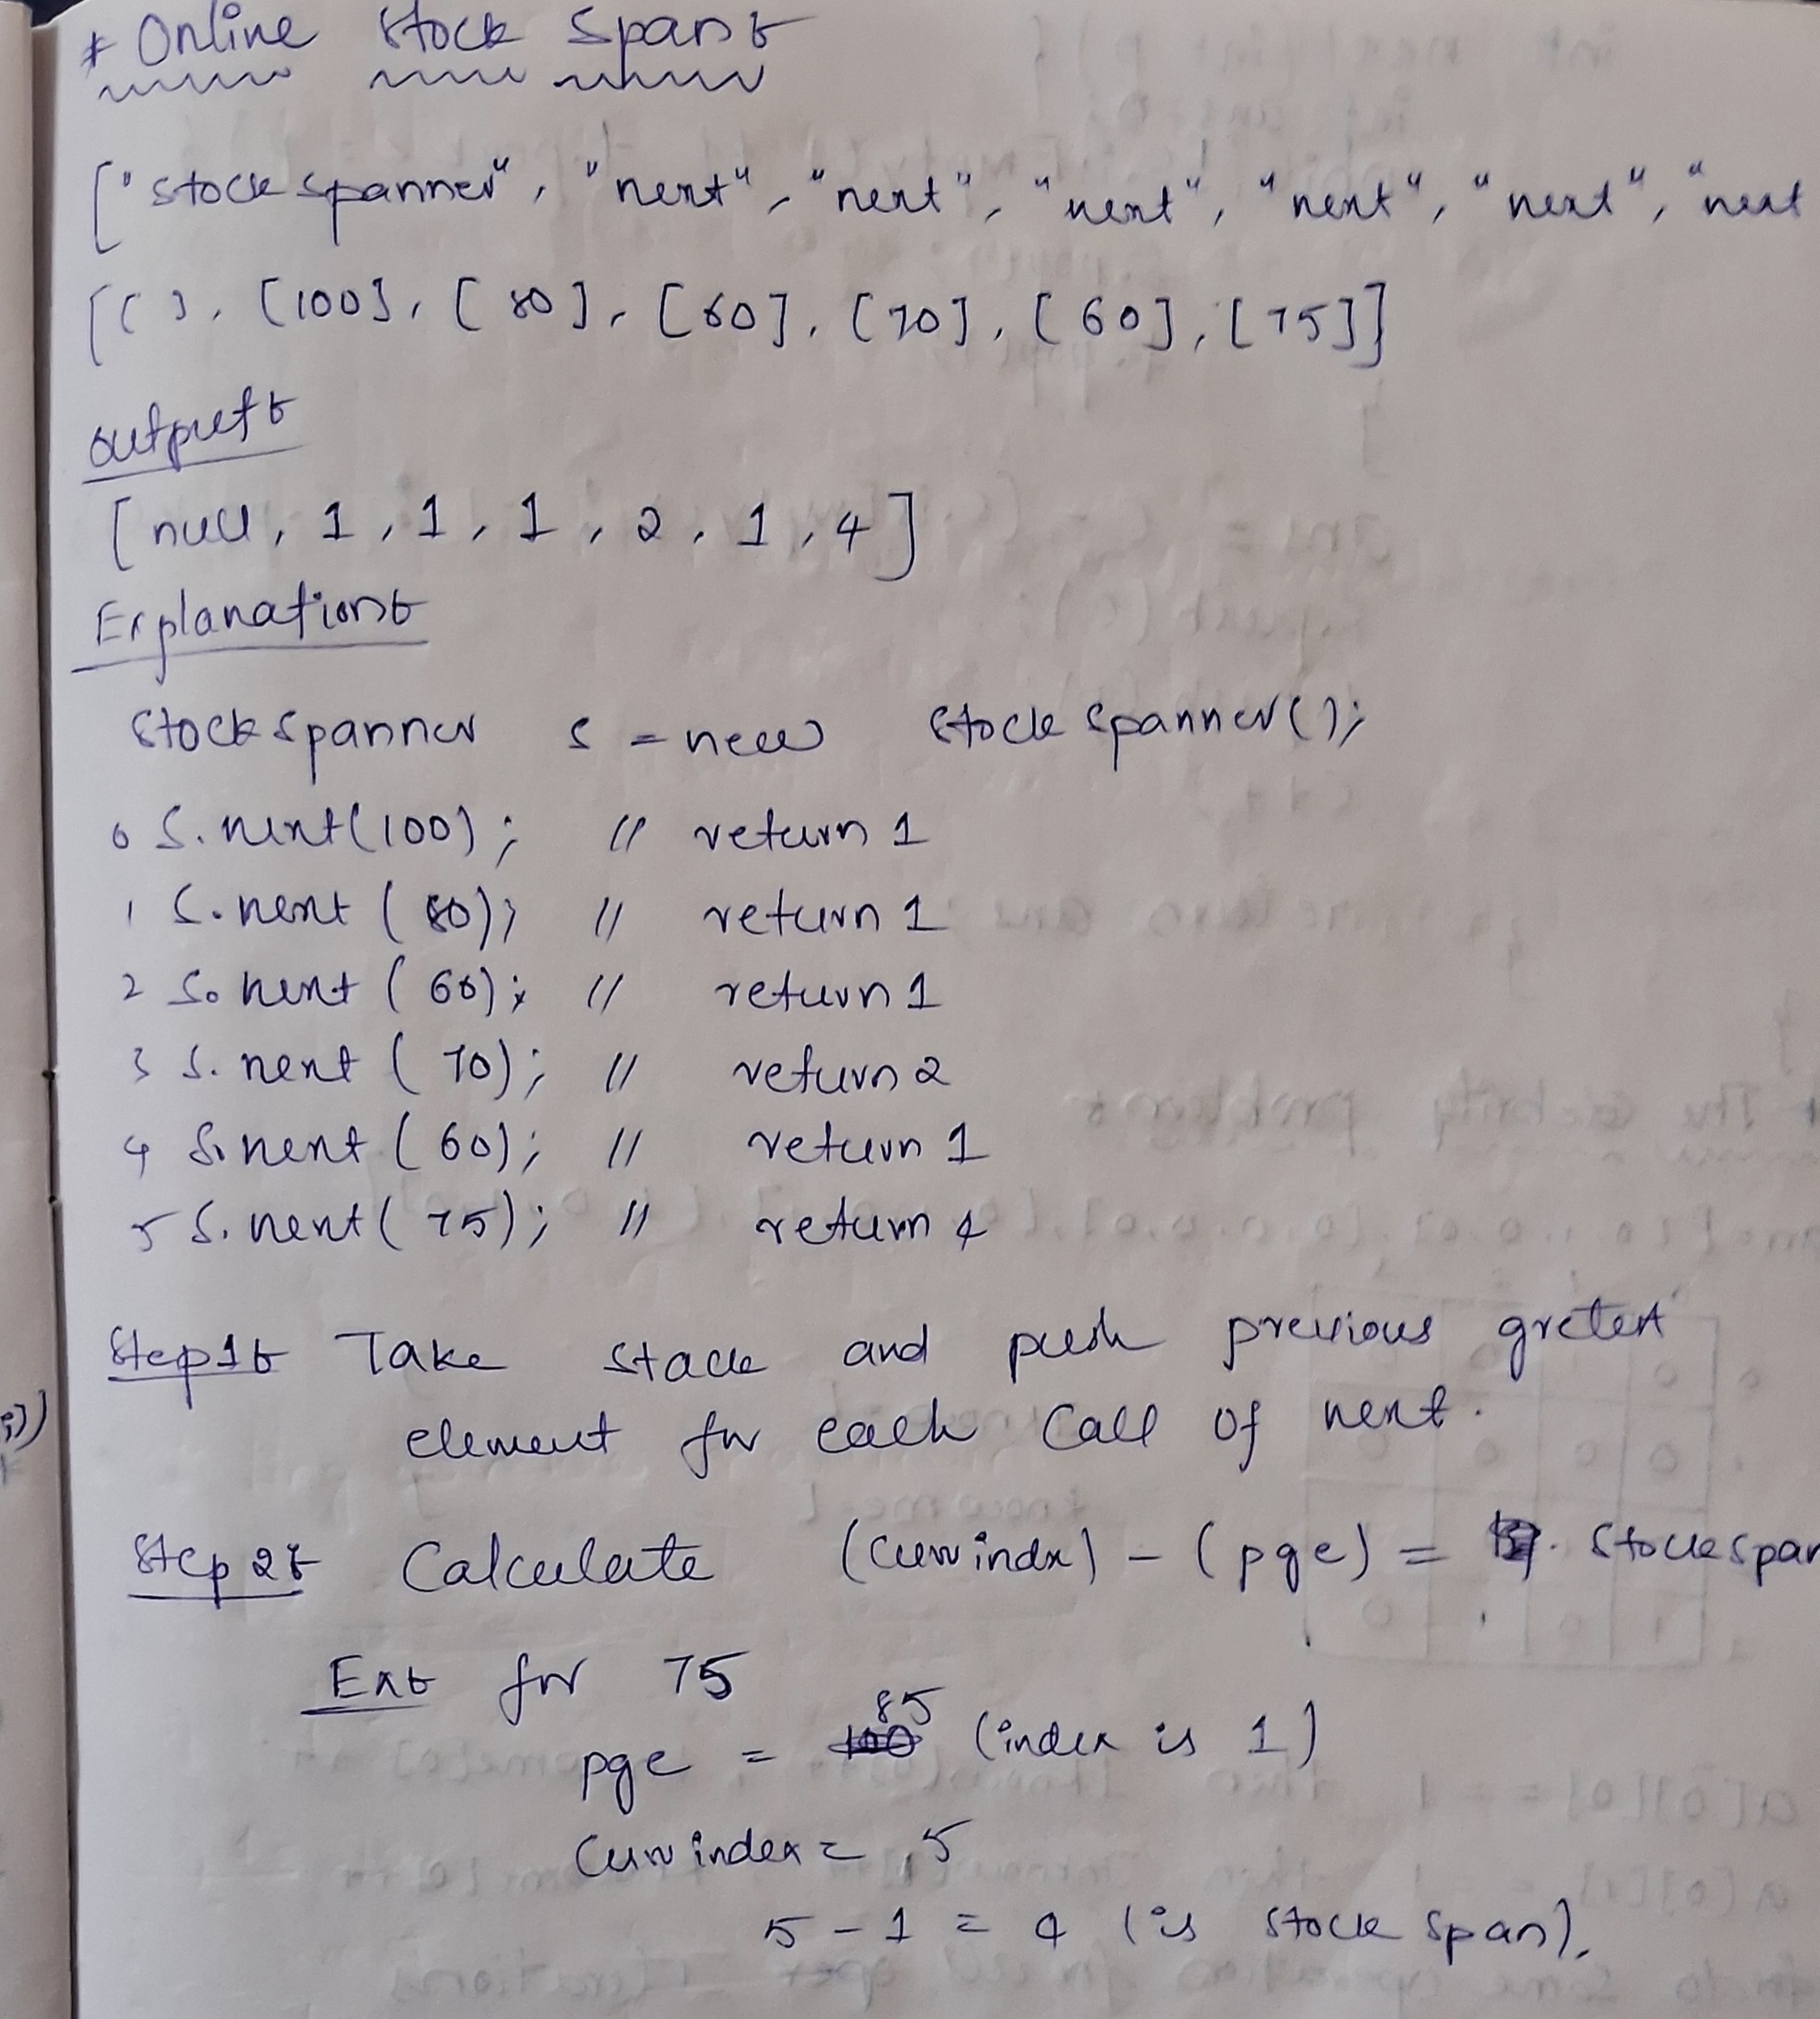 * Online Stock Span:
["stockspanner", "next", "next", "next", "next", "next", "next
[[], [100], [80], [60], [70], [60], [75]]
output:
[null, 1, 1, 1, 2, 1, 4]
Explanation:
Stockspanner s = new Stockspanner();
0 S.next(100); // return 1
1 S.next(80); // return 1
2 S.next(60); // return 1
3 S.next(70); // return 2
4 S.next(60); // return 1
5 S.next(75); // return 4
Step1: Take stack and push previous gretest
element for each call of next.
Step2: Calculate (curr indx) - (pge) = stockspan
Ex: for 75
pge = 85 (index is 1)
Curr index = 5
5 - 1 = 4 (is stock span).